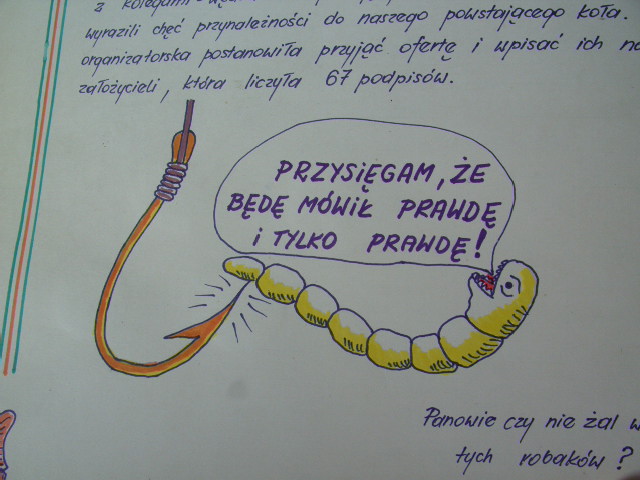 z kolegami
wyrazili chęć przynależności do naszego powstającego koła.
organizatorska postanowiła przyjąć ofertę i wpisać ich na
założycieli, która liczyła 67 podpisów.
PRZYSIĘGAM, ŻE
BĘDĘ MÓWIŁ PRAWDĘ
i TYLKO PRAWDĘ!
Panowie czy nie żal w
tych robaków?